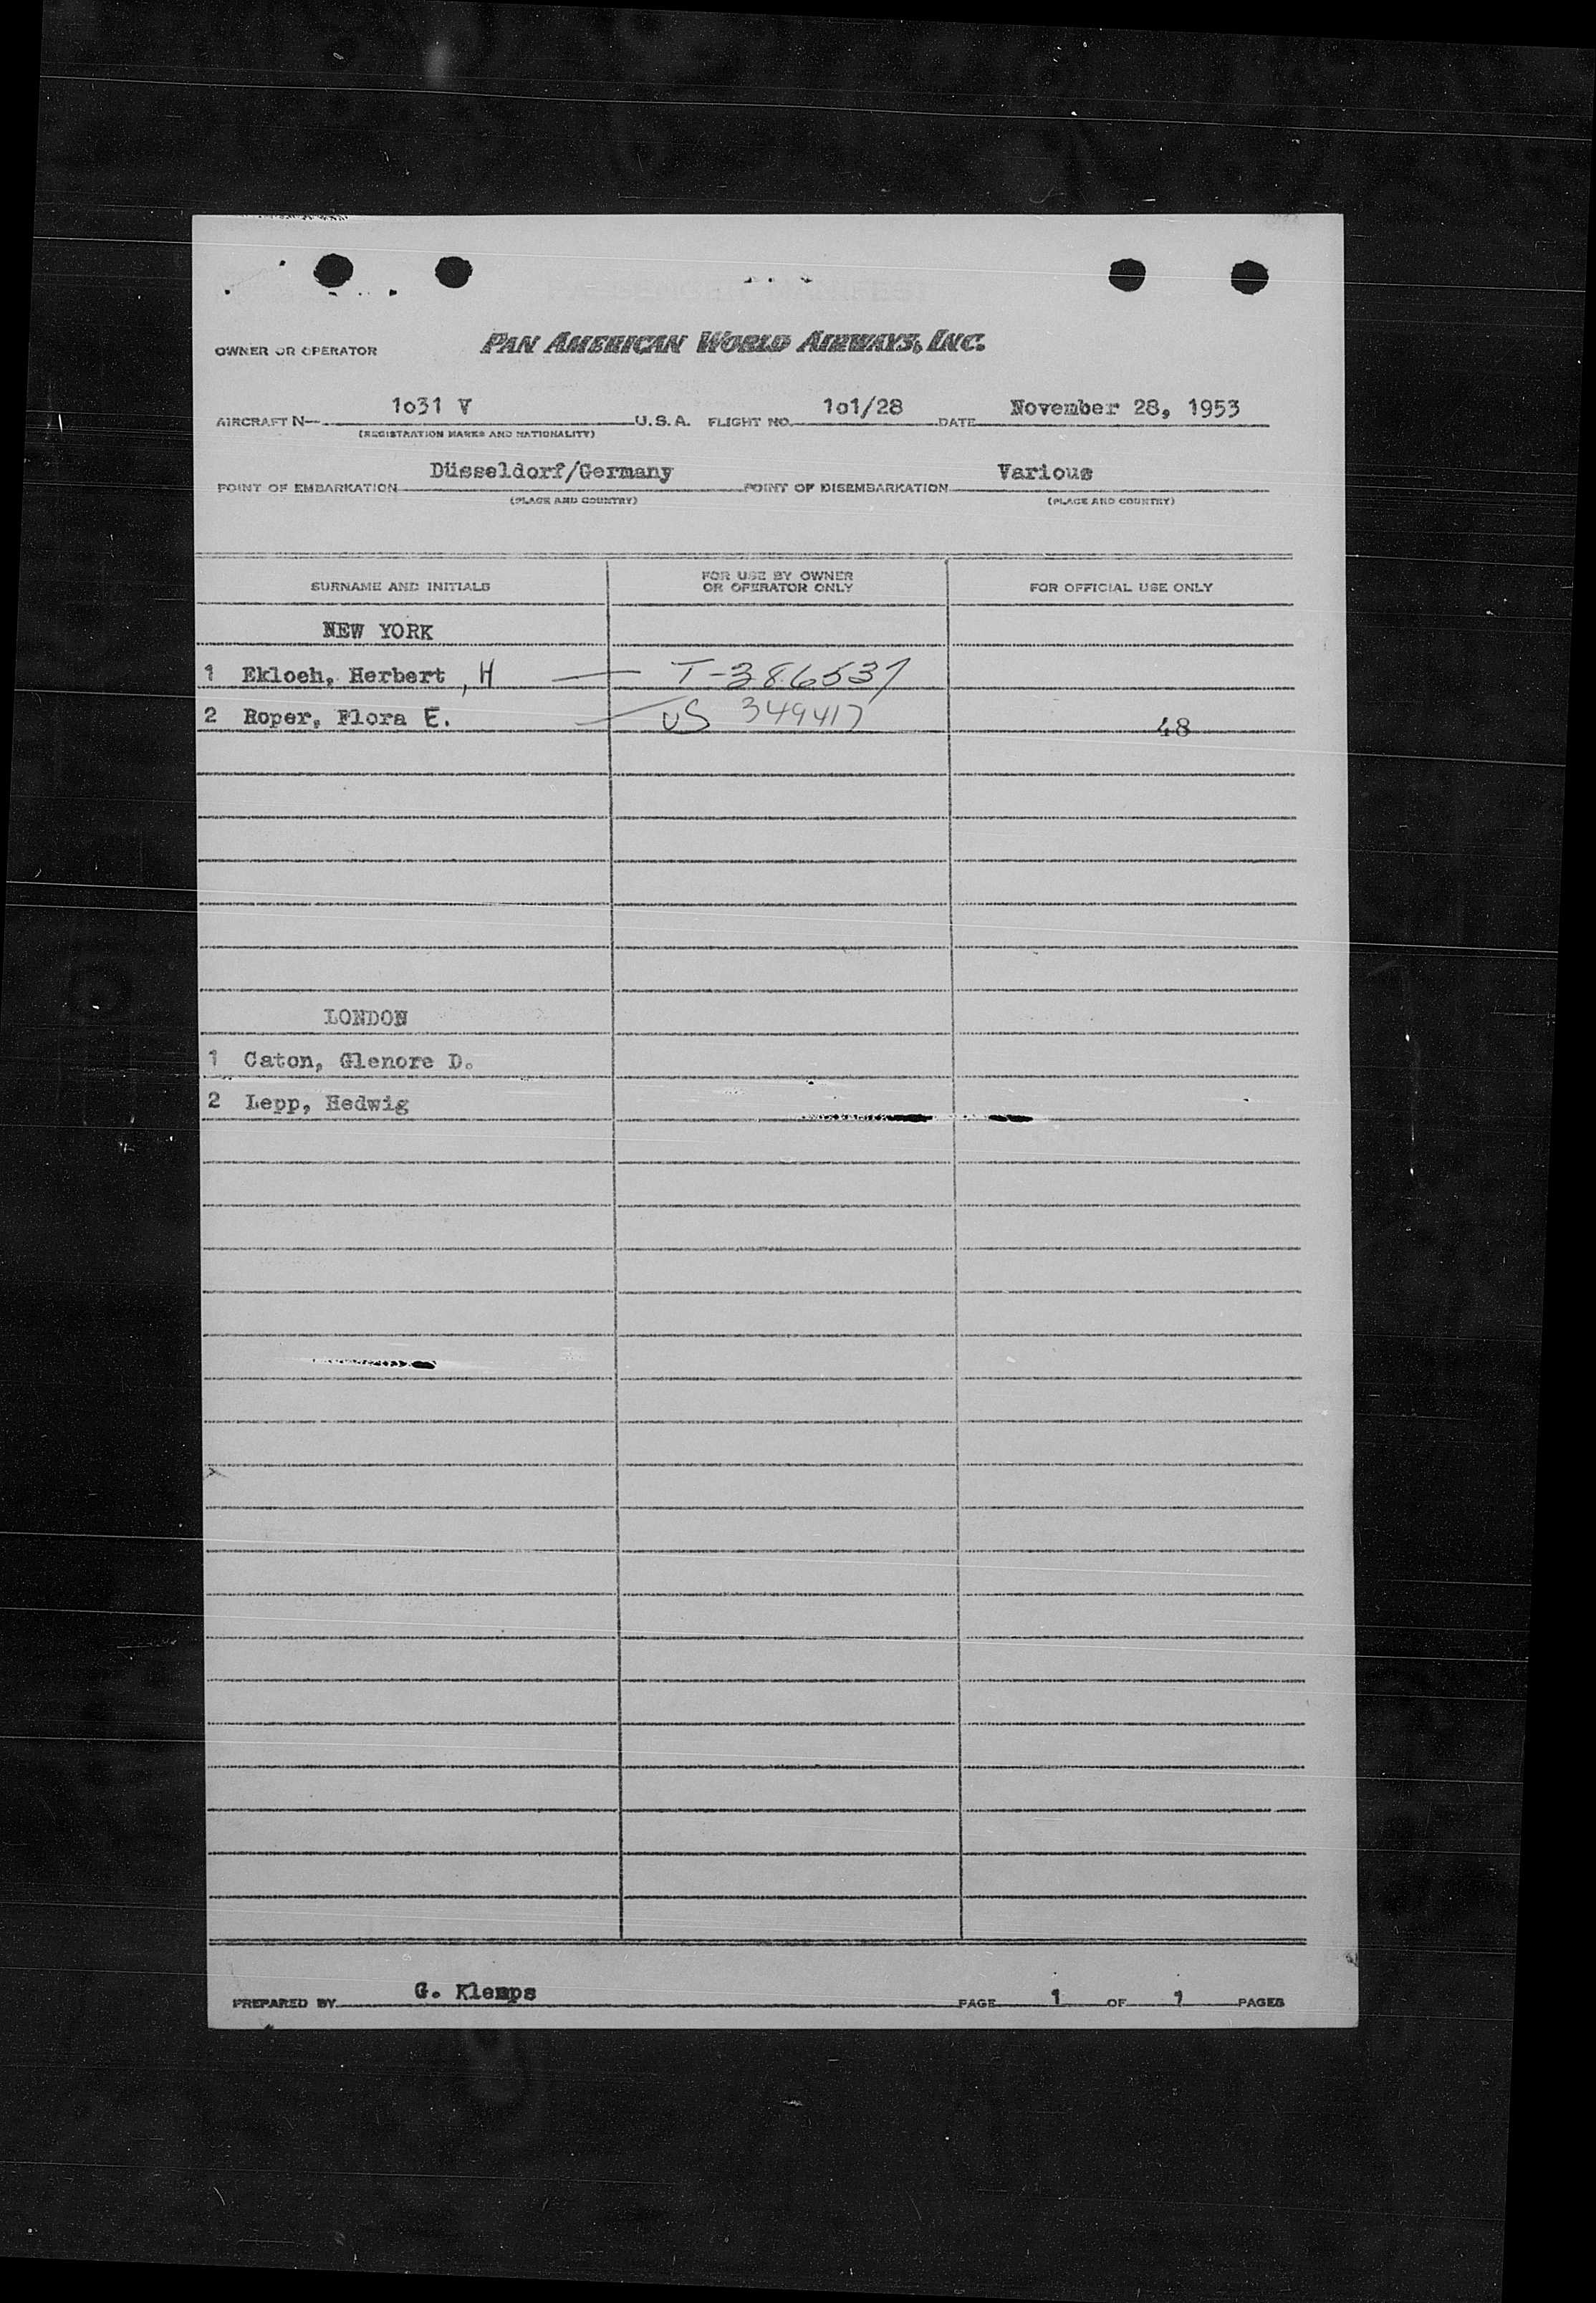 OWNER OR OPERATOR PAN AMERICAN WORLD AIRWAYS, INC.
AIRCRAFT N— 1o31 V U.S.A. FLIGHT NO. 1o1/28 DATE November 28, 1953
(REGISTRATION MARKS AND NATIONALITY)
POINT OF EMBARKATION Düsseldorf/Germany POINT OF DISEMBARKATION Various
(PLACE AND COUNTRY) (PLACE AND COUNTRY)
SURNAME AND INITIALS FOR USE BY OWNER OR OPERATOR ONLY FOR OFFICIAL USE ONLY
NEW YORK
1 Ekloeh, Herbert, H — T-386537
2 Roper, Flora E. — US 349417 48
LONDON
1 Caton, Glenore D.
2 Lepp, Hedwig
PREPARED BY G. Klemps PAGE 1 OF 1 PAGES